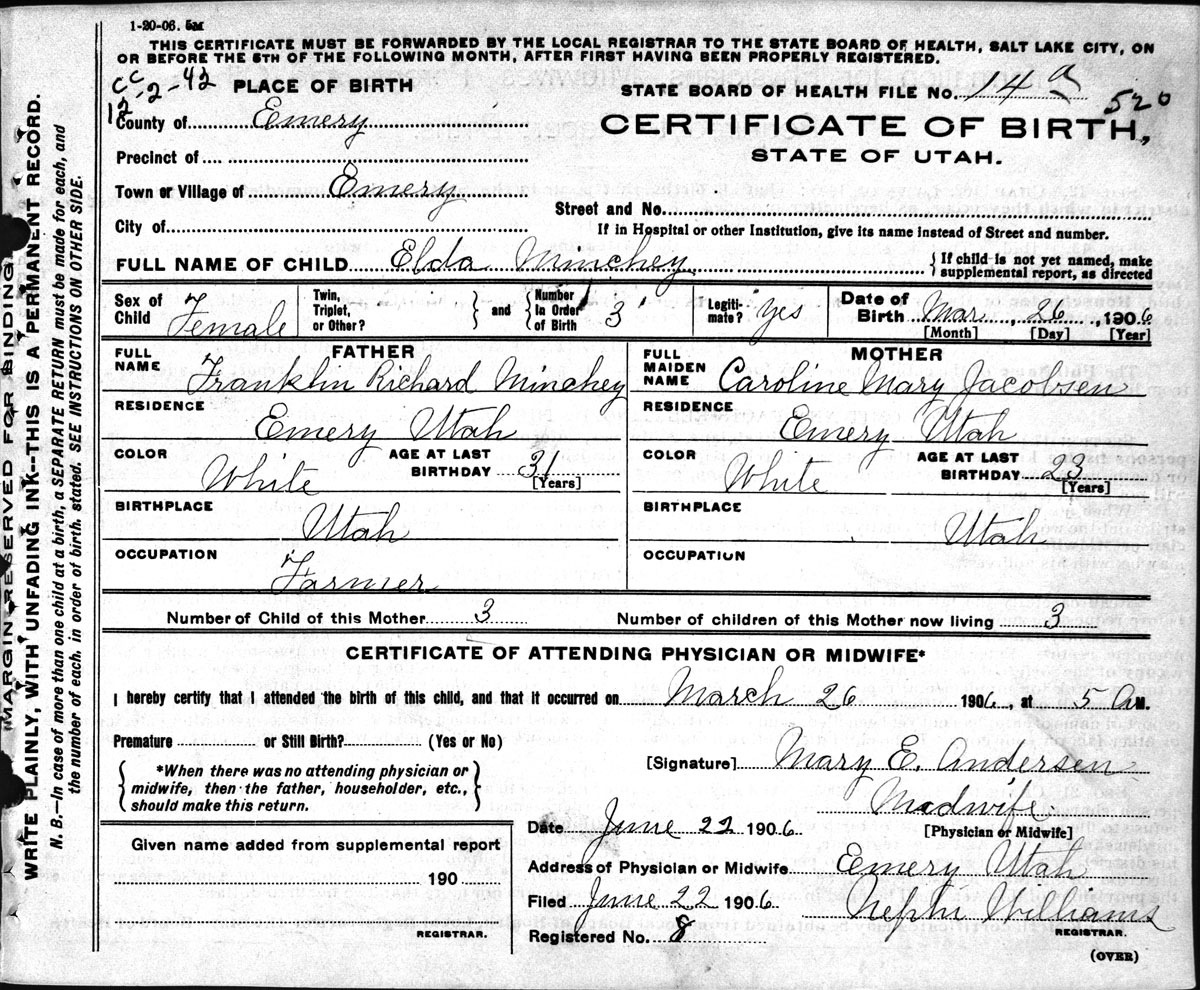 1-20-06. 5M
THIS CERTIFICATE MUST BE FORWARDED BY THE LOCAL REGISTRAR TO THE STATE BOARD OF HEALTH, SALT LAKE CITY, ON
OR BEFORE THE 5TH OF THE FOLLOWING MONTH, AFTER FIRST HAVING BEEN PROPERLY REGISTERED.
CC
12-2-42
PLACE OF BIRTH
STATE BOARD OF HEALTH FILE No. 14 a 520
County of Emery
CERTIFICATE OF BIRTH,
Precinct of
STATE OF UTAH.
Town or Village of Emery
Street and No.
City of
If in Hospital or other Institution, give its name instead of Street and number.
FULL NAME OF CHILD Elda Minchey
{ If child is not yet named, make
supplemental report, as directed
Sex of Child Female
Twin, Triplet, or Other? } and { Number In Order of Birth 3
Legiti-mate? yes
Date of Birth Mar, 26, 1906
[Month] [Day] [Year]
FATHER
FULL NAME Franklin Richard Minchey
RESIDENCE Emery Utah
COLOR White
AGE AT LAST BIRTHDAY 31 [Years]
BIRTHPLACE Utah
OCCUPATION Farmer
MOTHER
FULL MAIDEN NAME Caroline Mary Jacobsen
RESIDENCE Emery Utah
COLOR White
AGE AT LAST BIRTHDAY 23 [Years]
BIRTHPLACE Utah
OCCUPATION
Number of Child of this Mother 3 Number of children of this Mother now living 3
CERTIFICATE OF ATTENDING PHYSICIAN OR MIDWIFE*
I hereby certify that I attended the birth of this child, and that it occurred on March 26 1906, at 5 A M.
Premature or Still Birth? (Yes or No)
{ *When there was no attending physician or
midwife, then the father, householder, etc.,
should make this return. }
[Signature] Mary E. Andersen
Midwife
Date June 22 1906 [Physician or Midwife]
Given name added from supplemental report
190
REGISTRAR.
Address of Physician or Midwife Emery Utah
Filed June 22 1906 Nephi Williams
REGISTRAR.
Registered No. 8
(OVER)
MARGIN RESERVED FOR BINDING
WRITE PLAINLY, WITH UNFADING INK--THIS IS A PERMANENT RECORD.
N. B.—In case of more than one child at a birth, a SEPARATE RETURN must be made for each, and
the number of each, in order of birth, stated. SEE INSTRUCTIONS ON OTHER SIDE.